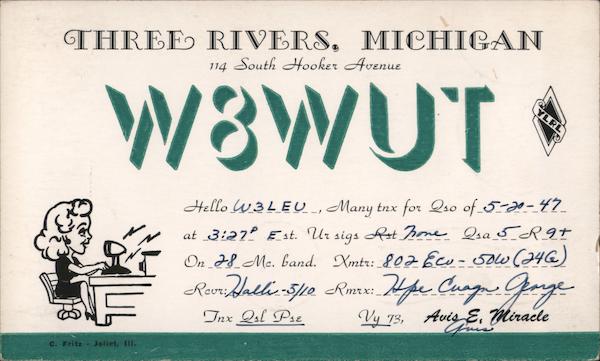 THREE RIVERS, MICHIGAN
114 South Hooker Avenue
W8WUT
YLRL
Hello W3LEU, Many tnx for Qso of 5-20-47
at 3:27P Est. Ur sigs Rst Fone Qsa 5 R 9+
On 28 Mc. band. Xmtr: 802 Eco - 50W (24G)
Rcvr: Halli-S/10 Rmrx: Hpe Cuagn George
Tnx Qsl Pse Vy 73, Avis E. Miracle
Avis
C. Fritz - Joliet, Ill.